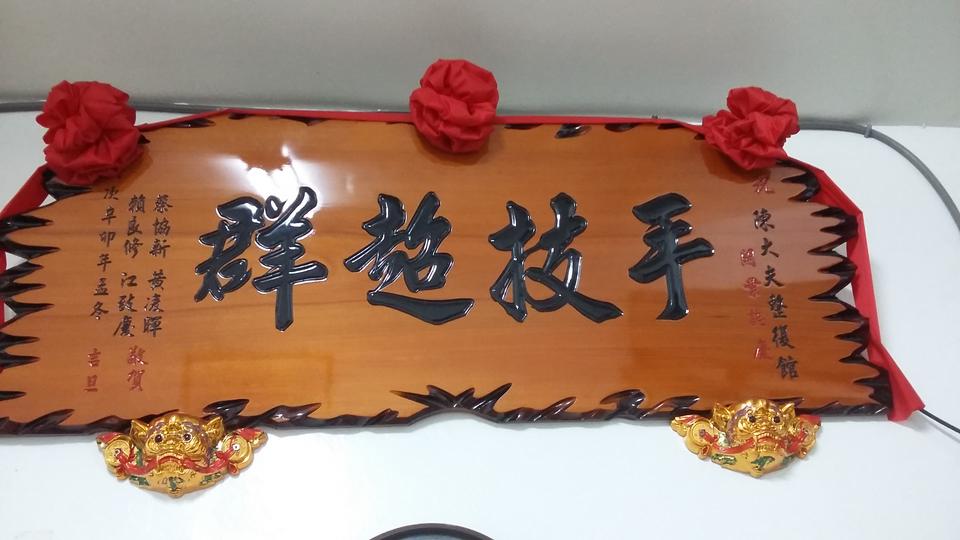 祝 陳大夫整復館
開業誌慶
手技超群
蔡協新 黃凌暉
賴良修 江致慶 敬賀
辛卯年孟冬 吉旦